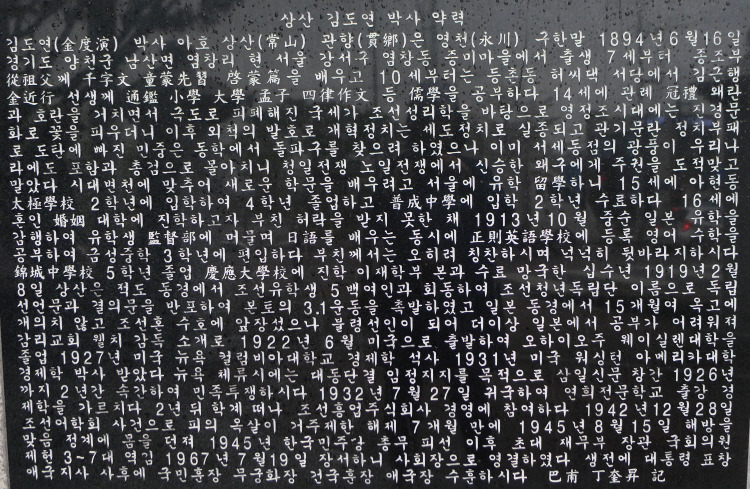 상산 김도연 박사 약력
김도연(金度演) 박사 아호 상산(常山) 관향(貫鄕)은 영천(永川) 구한말 1894년 6월 16일
경기도 양천군 남산면 염창리 현 서울 강서구 염창동 증미마을에서 출생 7세부터 종조부
從祖父께 千字文 童蒙先習 啓蒙篇을 배우고 10세부터는 등촌동 허씨댁 서당에서 김근행
金近行 선생께 通鑑 小學 大學 孟子 四律作文 등 儒學을 공부하다 14세에 관례 冠禮 왜란
과 호란을 거치면서 극도로 피폐해진 국세가 조선성리학을 바탕으로 영정조시대에는 진경문
화로 꽃을 피우더니 이후 외척의 발호로 개혁정치는 세도정치로 실종되고 관기문란 정치부패
로 도탄에 빠진 민중은 동학에서 돌파구를 찾으려 하였으나 이미 서세동점의 광풍이 우리나
라에도 포함과 총검으로 몰아치니 청일전쟁 노일전쟁에서 신승한 왜구에게 주권을 도적맞고
말았다 시대변천에 맞추어 새로운 학문을 배우려고 서울에 유학 留學하니 15세에 아현동
太極學校 2학년에 입학하여 4학년 졸업하고 普成中學에 입학 2학년 수료하다 16세에
혼인 婚姻 대학에 진학하고자 부친 허락을 받지 못한 채 1913년 10월 중순 일본 유학을
감행하여 유학생 監督部에 머물며 日語를 배우는 동시에 正則英語學校에 등록 영어 수학을
공부하여 금성중학 3학년에 편입하다 부친께서는 오히려 칭찬하시며 넉넉히 뒷바라지하시다
錦城中學校 5학년 졸업 慶應大學校에 진학 이재학부 본과 수료 망국한 십수년 1919년 2월
8일 상산은 적도 동경에서 조선유학생 5백여인과 회동하여 조선청년독립단 이름으로 독립
선언문과 결의문을 반포하여 본토의 3.1운동을 촉발하였고 일본 동경에서 15개월여 옥고에
개의치 않고 조선혼 수호에 앞장섰으나 불령선인이 되어 더이상 일본에서 공부가 어려워져
감리교회 웰치 감독 소개로 1922년 6월 미국으로 출발하여 오하이오주 웨이실렌대학을
졸업 1927년 미국 뉴욕 컬럼비아대학교 경제학 석사 1931년 미국 워싱턴 아메리카대학
경제학 박사 받았다 뉴욕 체류시에는 대동단결 임정지지를 목적으로 삼일신문 창간 1926년
까지 2년간 속간하여 민족투쟁하시다 1932년 7월 27일 귀국하여 연희전문학교 출강 경
제학을 가르치다 2년 뒤 학계 떠나 조선흥업주식회사 경영에 참여하다 1942년 12월 28일
조선어학회 사건으로 피의 옥살이 거주제한 해제 7개월 만에 1945년 8월 15일 해방을
맞음 정계에 몸을 던져 1945년 한국민주당 총무 피선 이후 초대 재무부 장관 국회의원
제헌 3-7대 역김 1967년 7월 19일 장서하니 사회장으로 영결하였다 생전에 대통령 표창
애국지사 사후에 국민훈장 무궁화장 건국훈장 애국장 수훈하시다 巴甫 丁奎昇 記